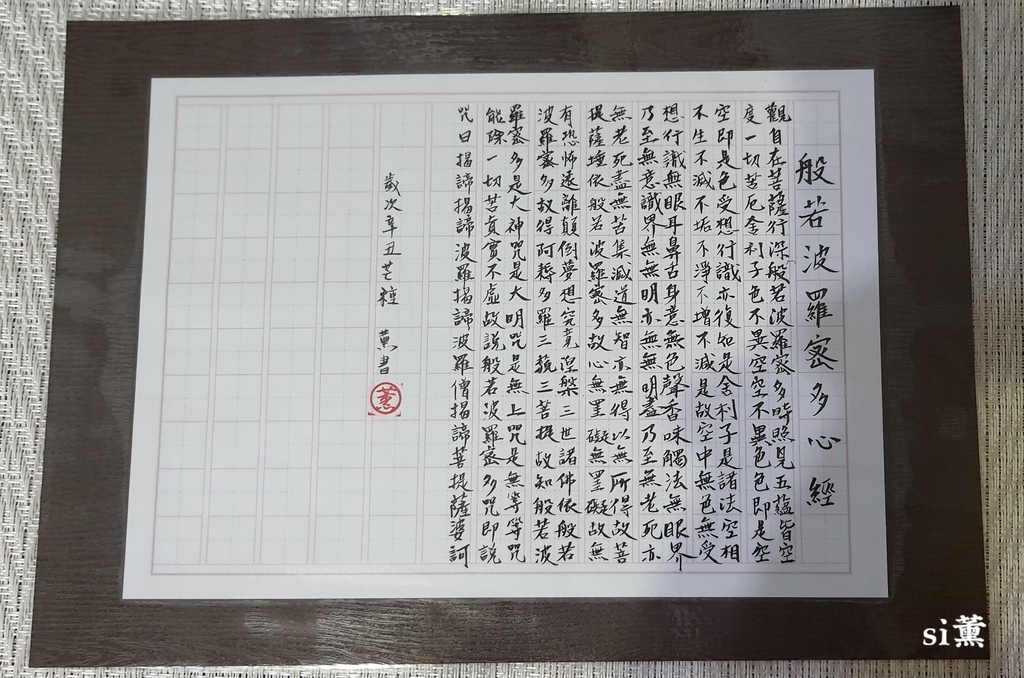 般若波羅蜜多心經
觀自在菩薩行深般若波羅蜜多時照見五蘊皆空
度一切苦厄舍利子色不異空空不異色色即是空
空即是色受想行識亦復如是舍利子是諸法空相
不生不滅不垢不淨不增不減是故空中無色無受
想行識無眼耳鼻舌身意無色聲香味觸法無眼界
乃至無意識界無無明亦無無明盡乃至無老死亦
無老死盡無苦集滅道無智亦無得以無所得故菩
提薩埵依般若波羅蜜多故心無罣礙無罣礙故無
有恐怖遠離顛倒夢想究竟涅槃三世諸佛依般若
波羅蜜多故得阿耨多羅三藐三菩提故知般若波
羅蜜多是大神咒是大明咒是無上咒是無等等咒
能除一切苦真實不虛故說般若波羅蜜多咒即說
咒曰揭諦揭諦波羅揭諦波羅僧揭諦菩提薩婆訶
歲次辛丑芒種 薰書
薰
si薰